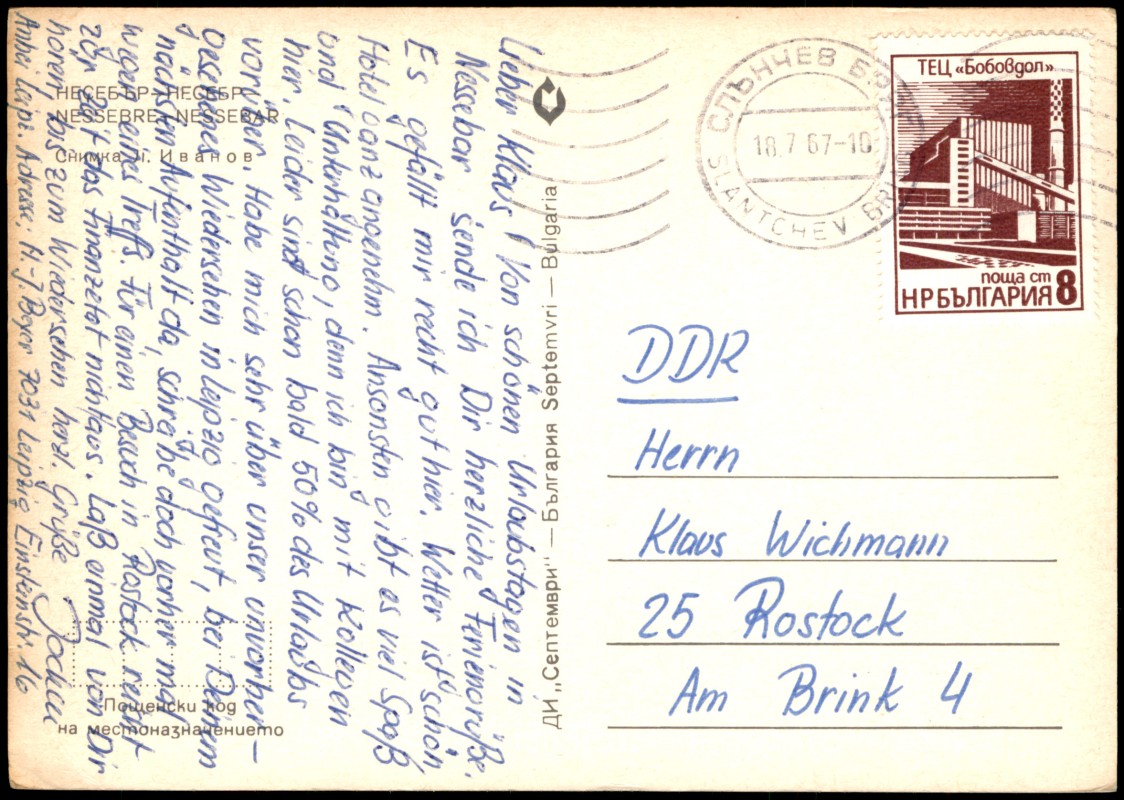 НЕСЕБЪР — НЕСЕБР
NESSEBRE — NESSEBAR
Снимка Л. Иванов
Lieber Klaus! Von schönen Urlaubstagen in
Nessebar sende ich Dir herzliche Feriengrüße.
Es gefällt mir recht gut hier. Wetter ist schön,
Hotel ganz angenehm. Ansonsten gibt es viel Spaß
und Unterhaltung, denn ich bin mit Kollegen
hier. Leider sind schon bald 50% des Urlaubs
vorüber. Habe mich sehr über unser unvorher-
gesehenes Wiedersehen in Leipzig gefreut, bei Deinem
nächsten Aufenthalt da, schreibe doch vorher mal
wegen eines Treffs. Für einen Besuch in Rostock reicht
zur Zeit das Finanzetat nicht aus. Laß einmal von Dir
hören, bis zum Wiedersehen herzl. Grüße
Anbei Leipz. Adresse: 7031 Leipzig Einsteinstr. 16
Пощенски код
на местоназначението
ДИ „Септември" — България Septemvri — Bulgaria
СЛЪНЧЕВ БРЯГ
18.7.67-10
SLANTCHEV BRIAG
ТЕЦ «Бобовдол»
поща ст 8
НР БЪЛГАРИЯ
DDR
Herrn
Klaus Wichmann
25 Rostock
Am Brink 4